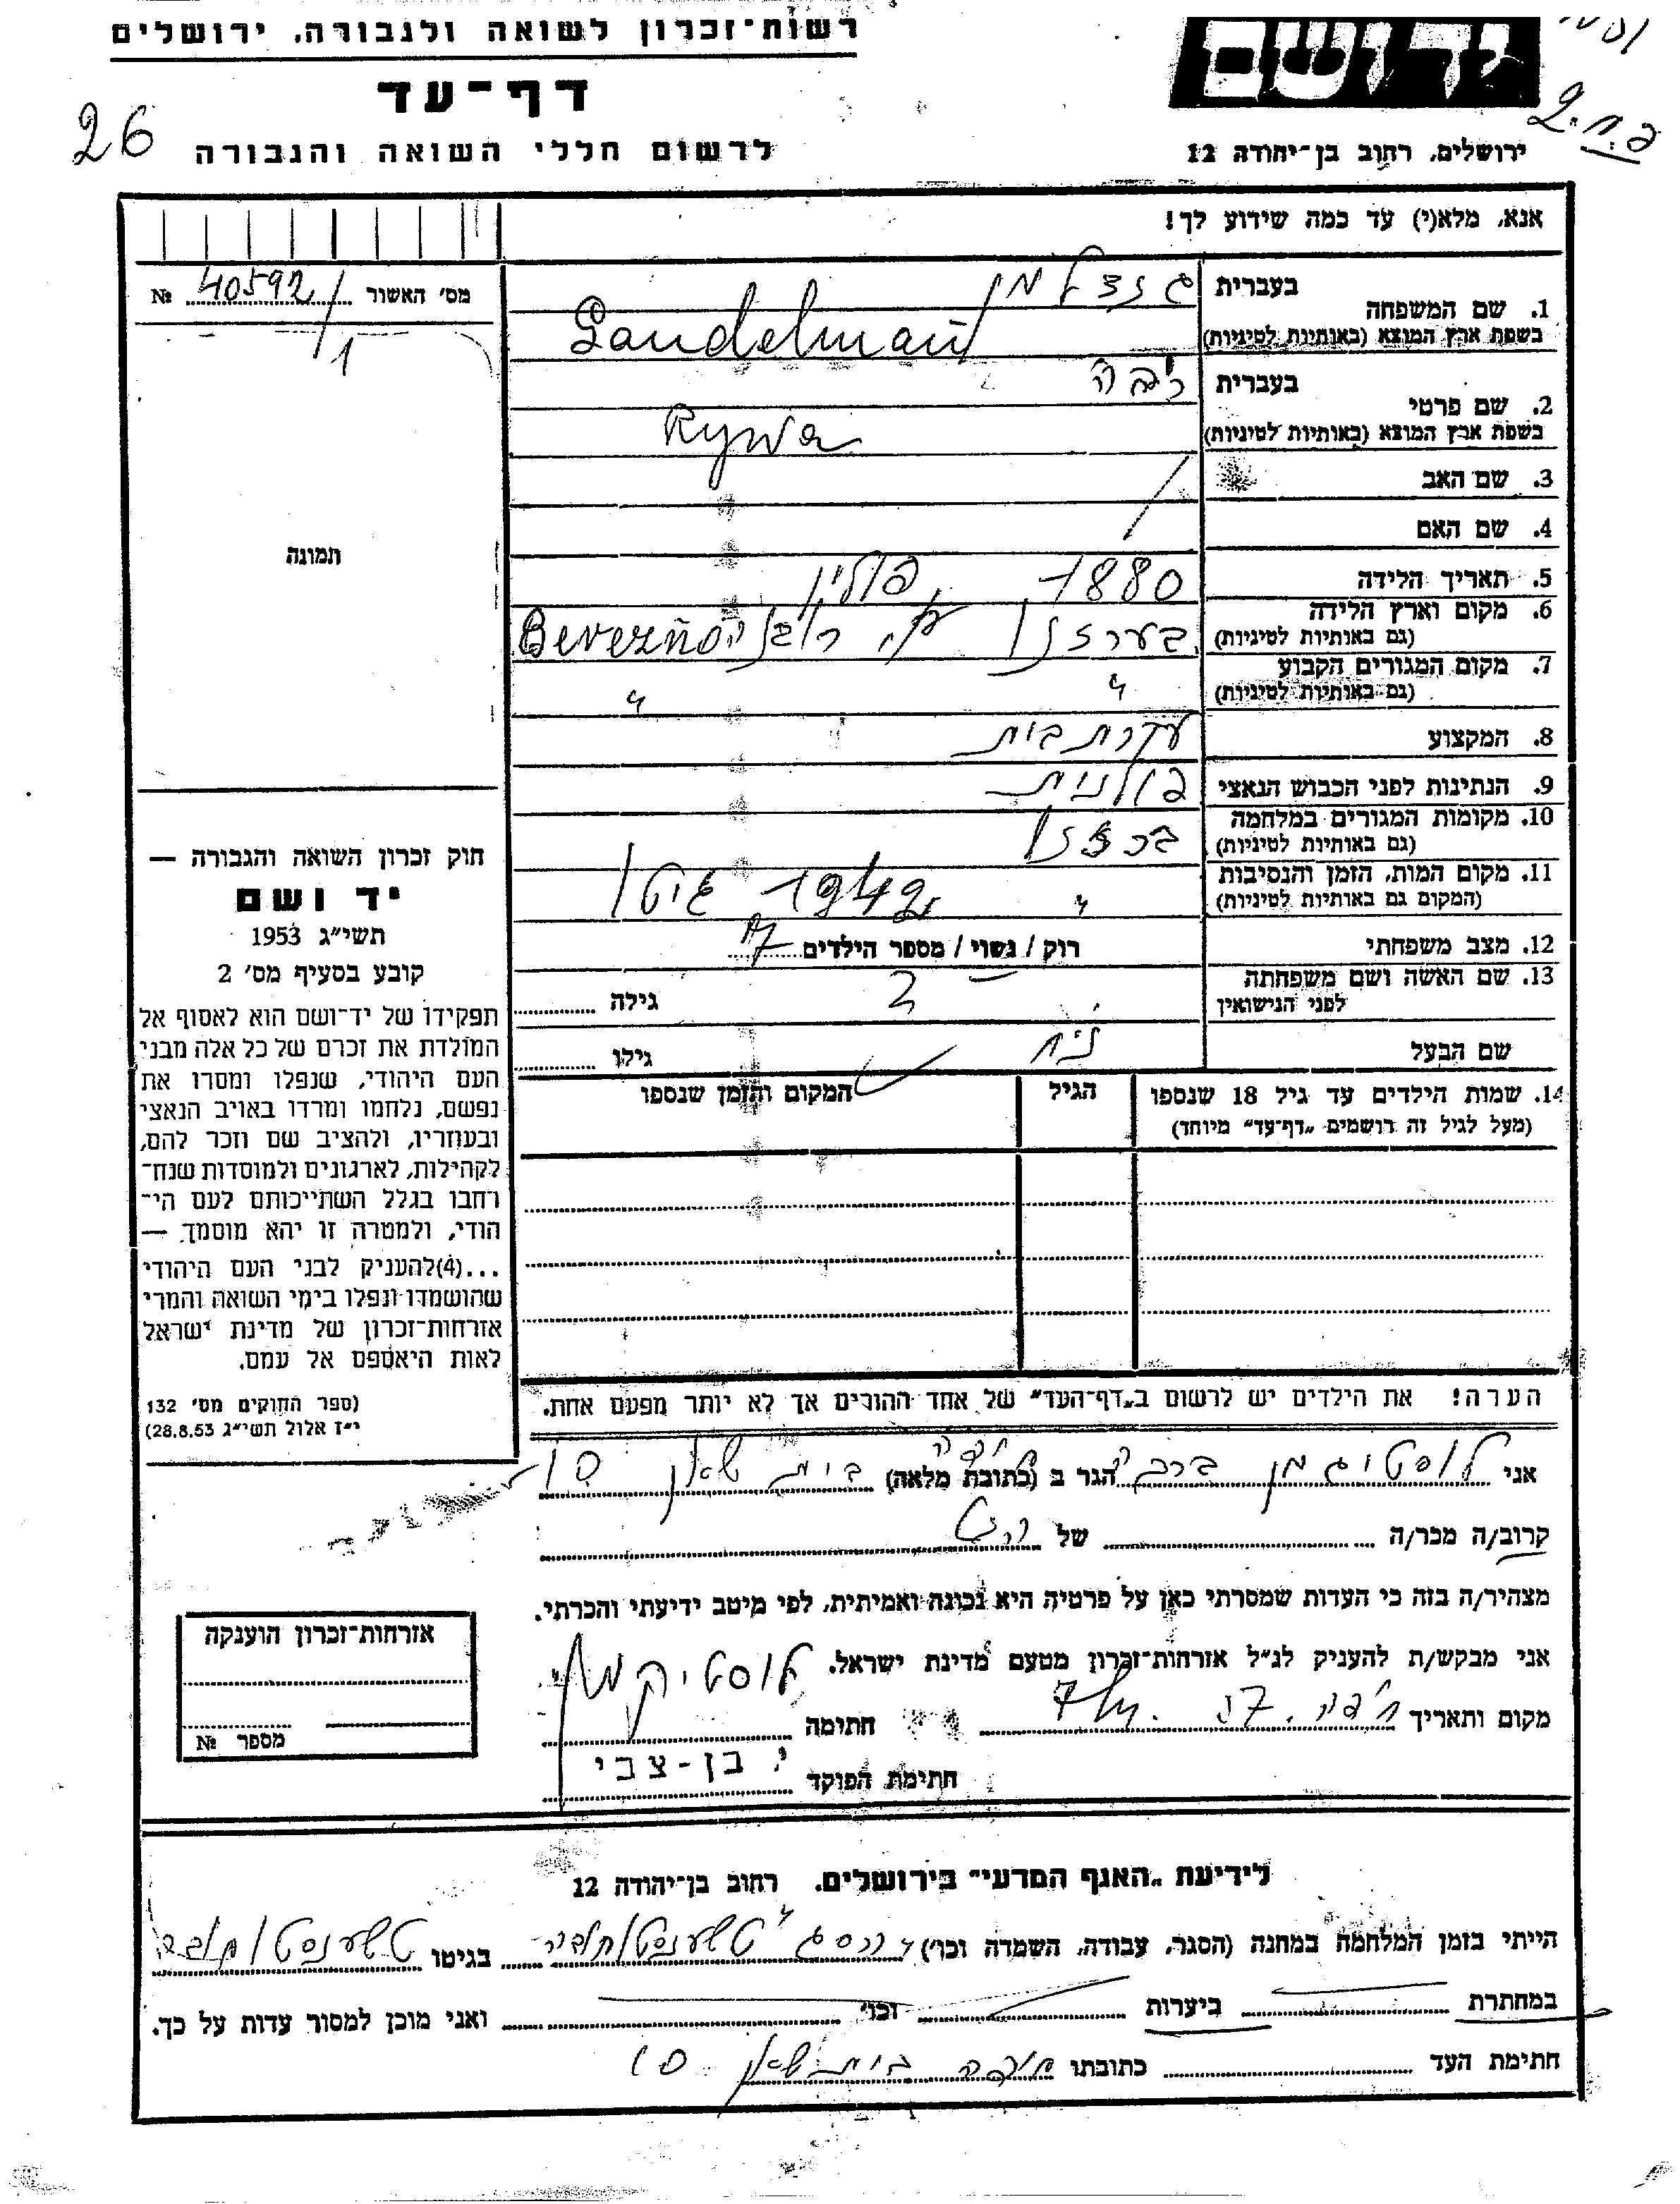 רשות־זכרון לשואה ולגבורה, ירושלים
דף־עד
26
לרשום חללי השואה והגבורה
ירושלים, רחוב בן־יהודה 12
אנא, מלא(י) עד כמה שידוע לך!
מס׳ האשור 40592/ №
1
1. שם המשפחה
בעברית
בשפת ארץ המוצא (באותיות לטיניות) Gandelman
2. שם פרטי
בעברית ריבה
בשפת ארץ המוצא (באותיות לטיניות) Rywa
3. שם האב
4. שם האם
תמונה
5. תאריך הלידה 1880 פולין
6. מקום וארץ הלידה
(גם באותיות לטיניות)
7. מקום המגורים הקבוע
(גם באותיות לטיניות) " "
8. המקצוע עקרת בית
9. הנתינות לפני הכבוש הנאצי פולנית
10. מקומות המגורים במלחמה
(גם באותיות לטיניות)
11. מקום המות, הזמן והנסיבות
(המקום גם באותיות לטיניות) " 1942 גיטו
12. מצב משפחתי רוק / נשוי / מספר הילדים
13. שם האשה ושם משפחתה
לפני הנישואין גילה
שם הבעל גילו
14. שמות הילדים עד גיל 18 שנספו
(מעל לגיל זה רושמים „דף־עד״ מיוחד)
הגיל
המקום והזמן שנספו
חוק זכרון השואה והגבורה —
יד ושם
תשי״ג 1953
קובע בסעיף מס׳ 2
תפקידו של יד־ושם הוא לאסוף אל
המולדת את זכרם של כל אלה מבני
העם היהודי, שנפלו ומסרו את
נפשם, נלחמו ומרדו באויב הנאצי
ובעוזריו, ולהציב שם וזכר להם,
לקהילות, לארגונים ולמוסדות שנח־
רחבו בגלל השתייכותם לעם הי־
הודי, ולמטרה זו יהא מוסמך —
...(4)להעניק לבני העם היהודי
שהושמדו ונפלו בימי השואה והמרי
אזרחות־זכרון של מדינת ישראל
לאות היאספם אל עמם.
(ספר החוקים מס׳ 132
י״ז אלול תשי״ג 28.8.53)
הערה! את הילדים יש לרשום ב„דף־העד״ של אחד ההורים אך לא יותר מפעם אחת.
אני לוסטיגמן ברכה הגר ב (כתובת מלאה) חיפה בית שאן 10
קרוב/ה מכר/ה של
מצהיר/ה בזה כי העדות שמסרתי כאן על פרטיה היא נכונה ואמיתית, לפי מיטב ידיעתי והכרתי.
אני מבקש/ת להעניק לנ״ל אזרחות־זכרון מטעם מדינת ישראל.
מקום ותאריך חיפה חתימה
חתימת הפוקד י. בן-צבי
אזרחות־זכרון הוענקה
מספר №
לידיעת „האגף המדעי״ בירושלים, רחוב בן־יהודה 12
הייתי בזמן המלחמה במחנה (הסגר, עבודה, השמדה וכו׳) בגיטו
במחתרת ביערות וכו׳ ואני מוכן למסור עדות על כך.
חתימת העד כתובתו חיפה בית שאן 10